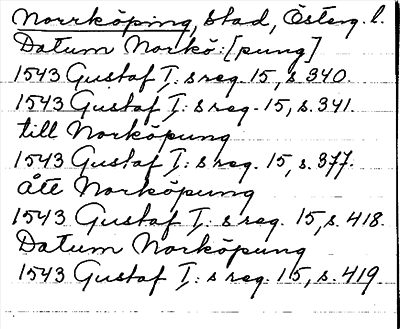 Norrköping, stad, Österg. l.
Datum Norkö:[pung]
1543 Gustaf I: s reg. 15, s. 340.
1543 Gustaf I: s reg. 15, s. 341.
till Norköpung
1543 Gustaf I: s reg. 15, s. 377.
ått Norköpung
1543 Gustaf I: s reg. 15, s. 418.
Datum Norköpung
1543 Gustaf I: s reg. 15, s. 419